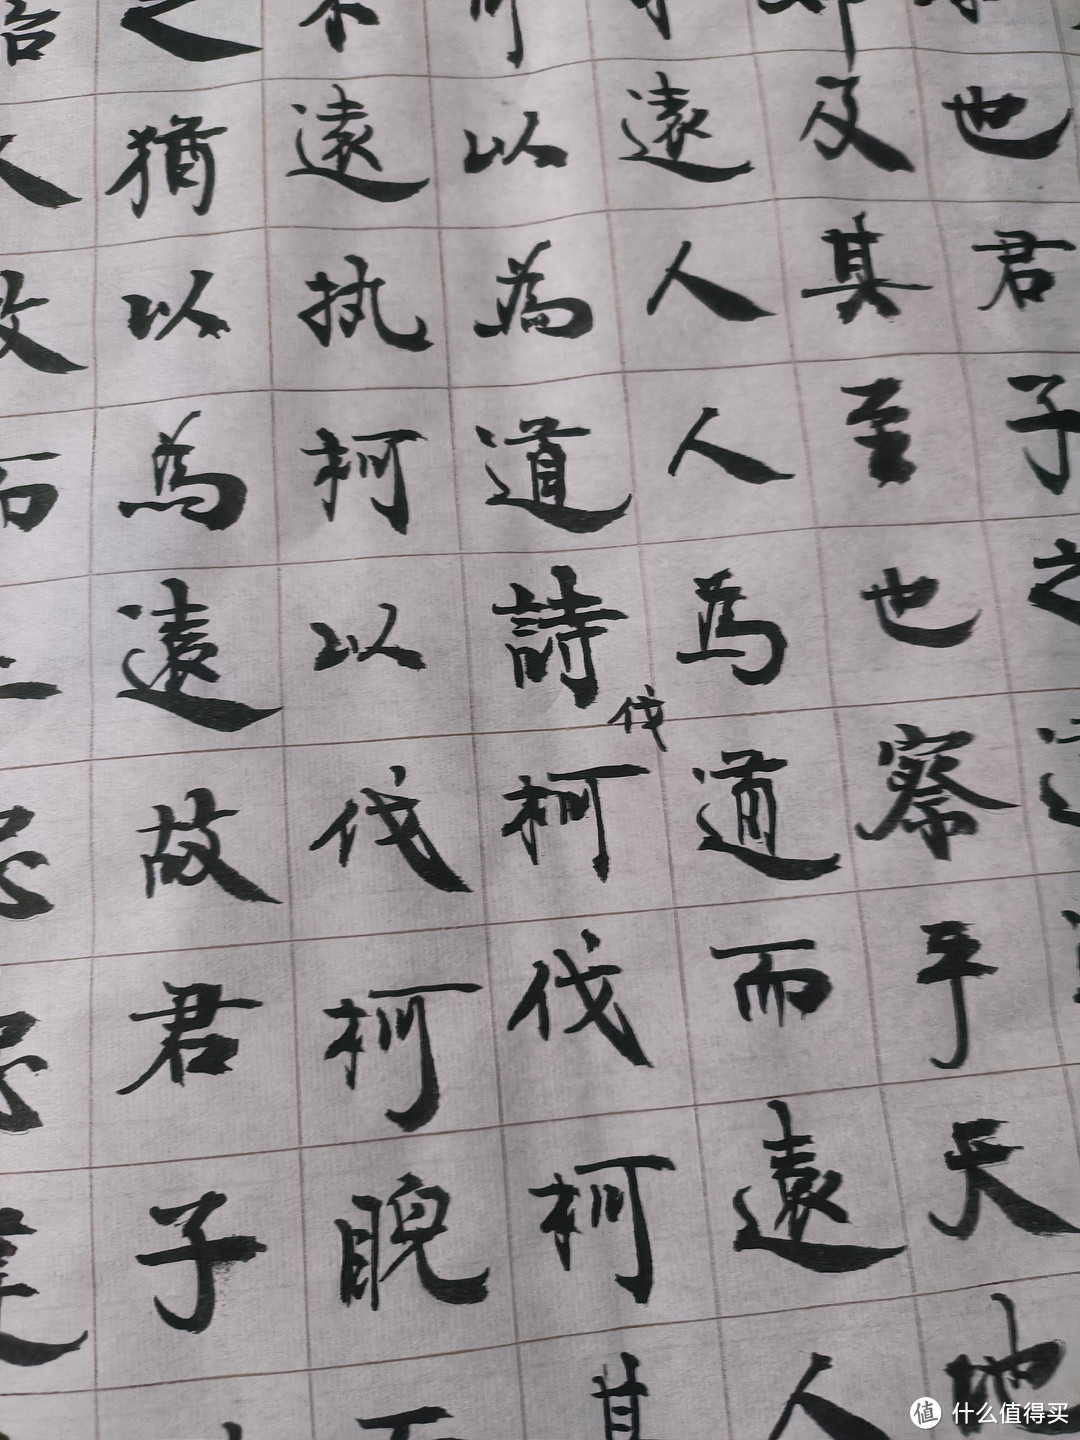 也君子之
及其至也察乎天地
遠人人為道而遠人
可以為道詩伐柯伐柯其
不遠执柯以伐柯睨而
之猶以為遠故君子
人
什么值得买